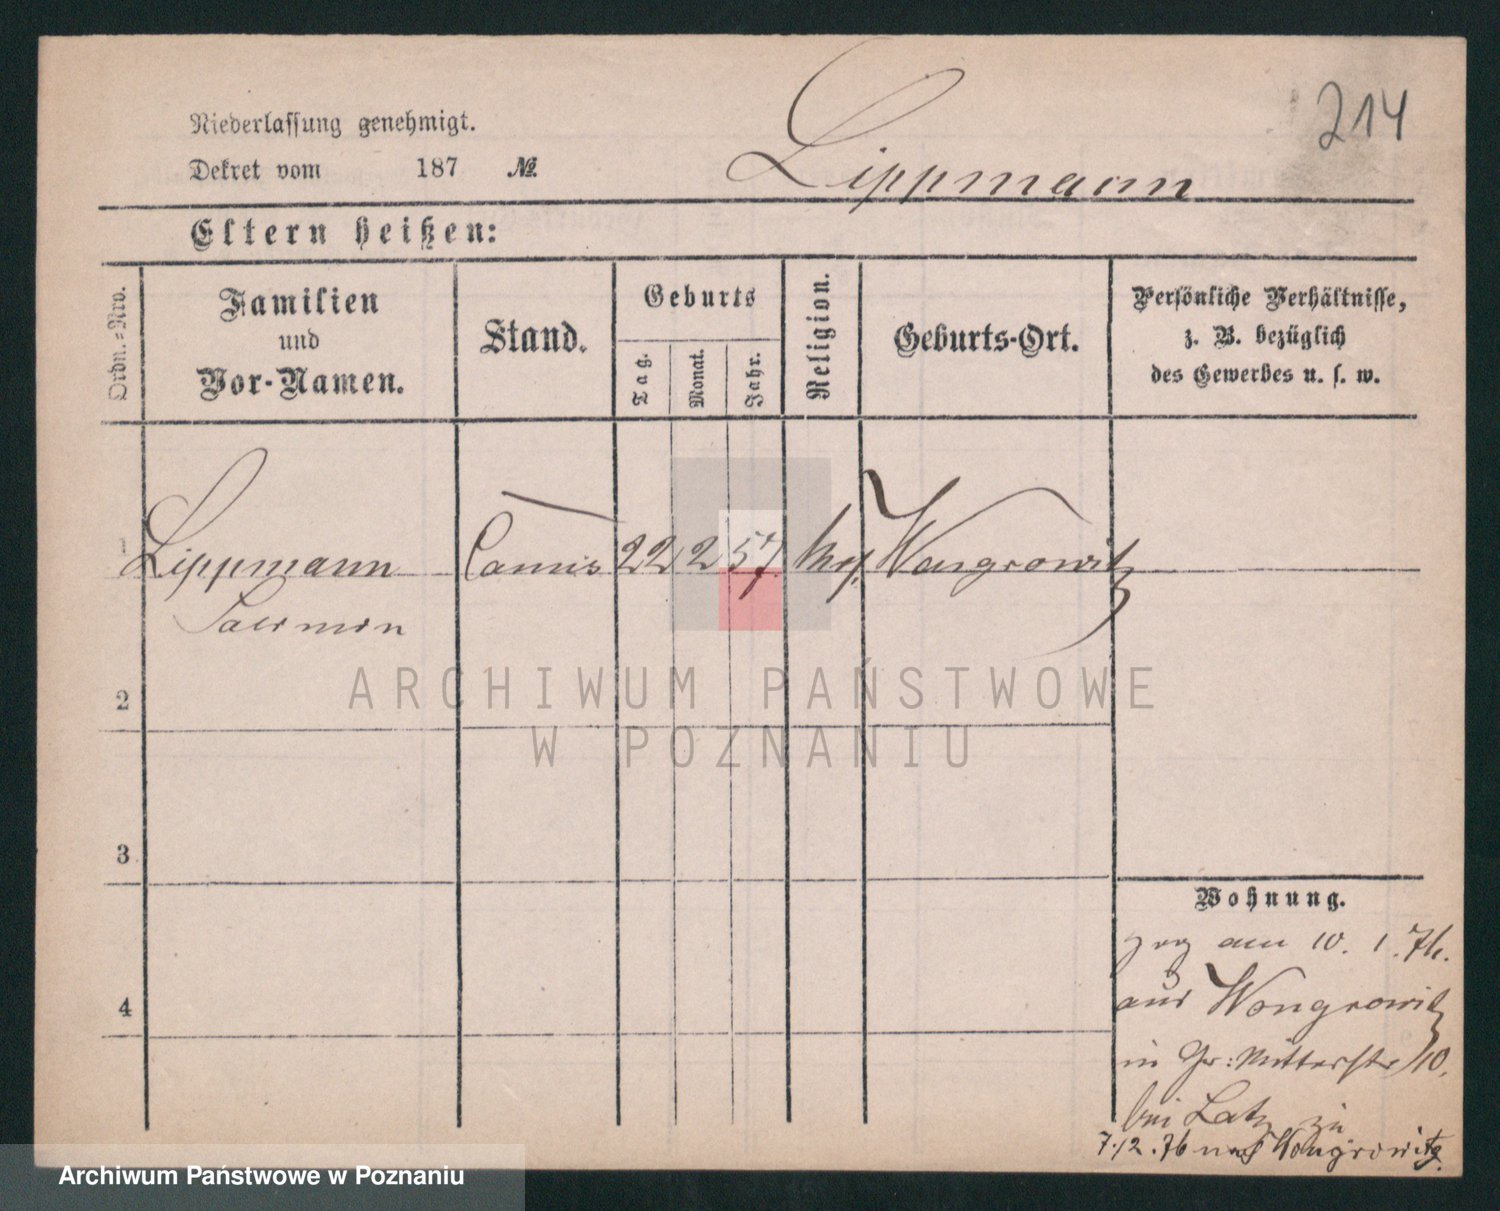 214
Niederlassung genehmigt.
Dekret vom 187 №
Lippmann
Eltern heißen:
Ordn.=Nro.
Familien
und
Vor-Namen.
Stand.
Geburts
Tag.
Monat.
Jahr.
Religion.
Geburts-Ort.
Persönliche Verhältnisse,
z. B. bezüglich
des Gewerbes u. s. w.
1
Lippmann Commis 22 2 57 Wongrowitz
Salomon
2
3
4
Wohnung.
zog am 10. 1. 76.
aus Wongrowitz
in Gr: Ritterstr 10.
bei Latz
7.12.76 nach Wongrowitz.
ARCHIWUM PAŃSTWOWE
W POZNANIU
Archiwum Państwowe w Poznaniu